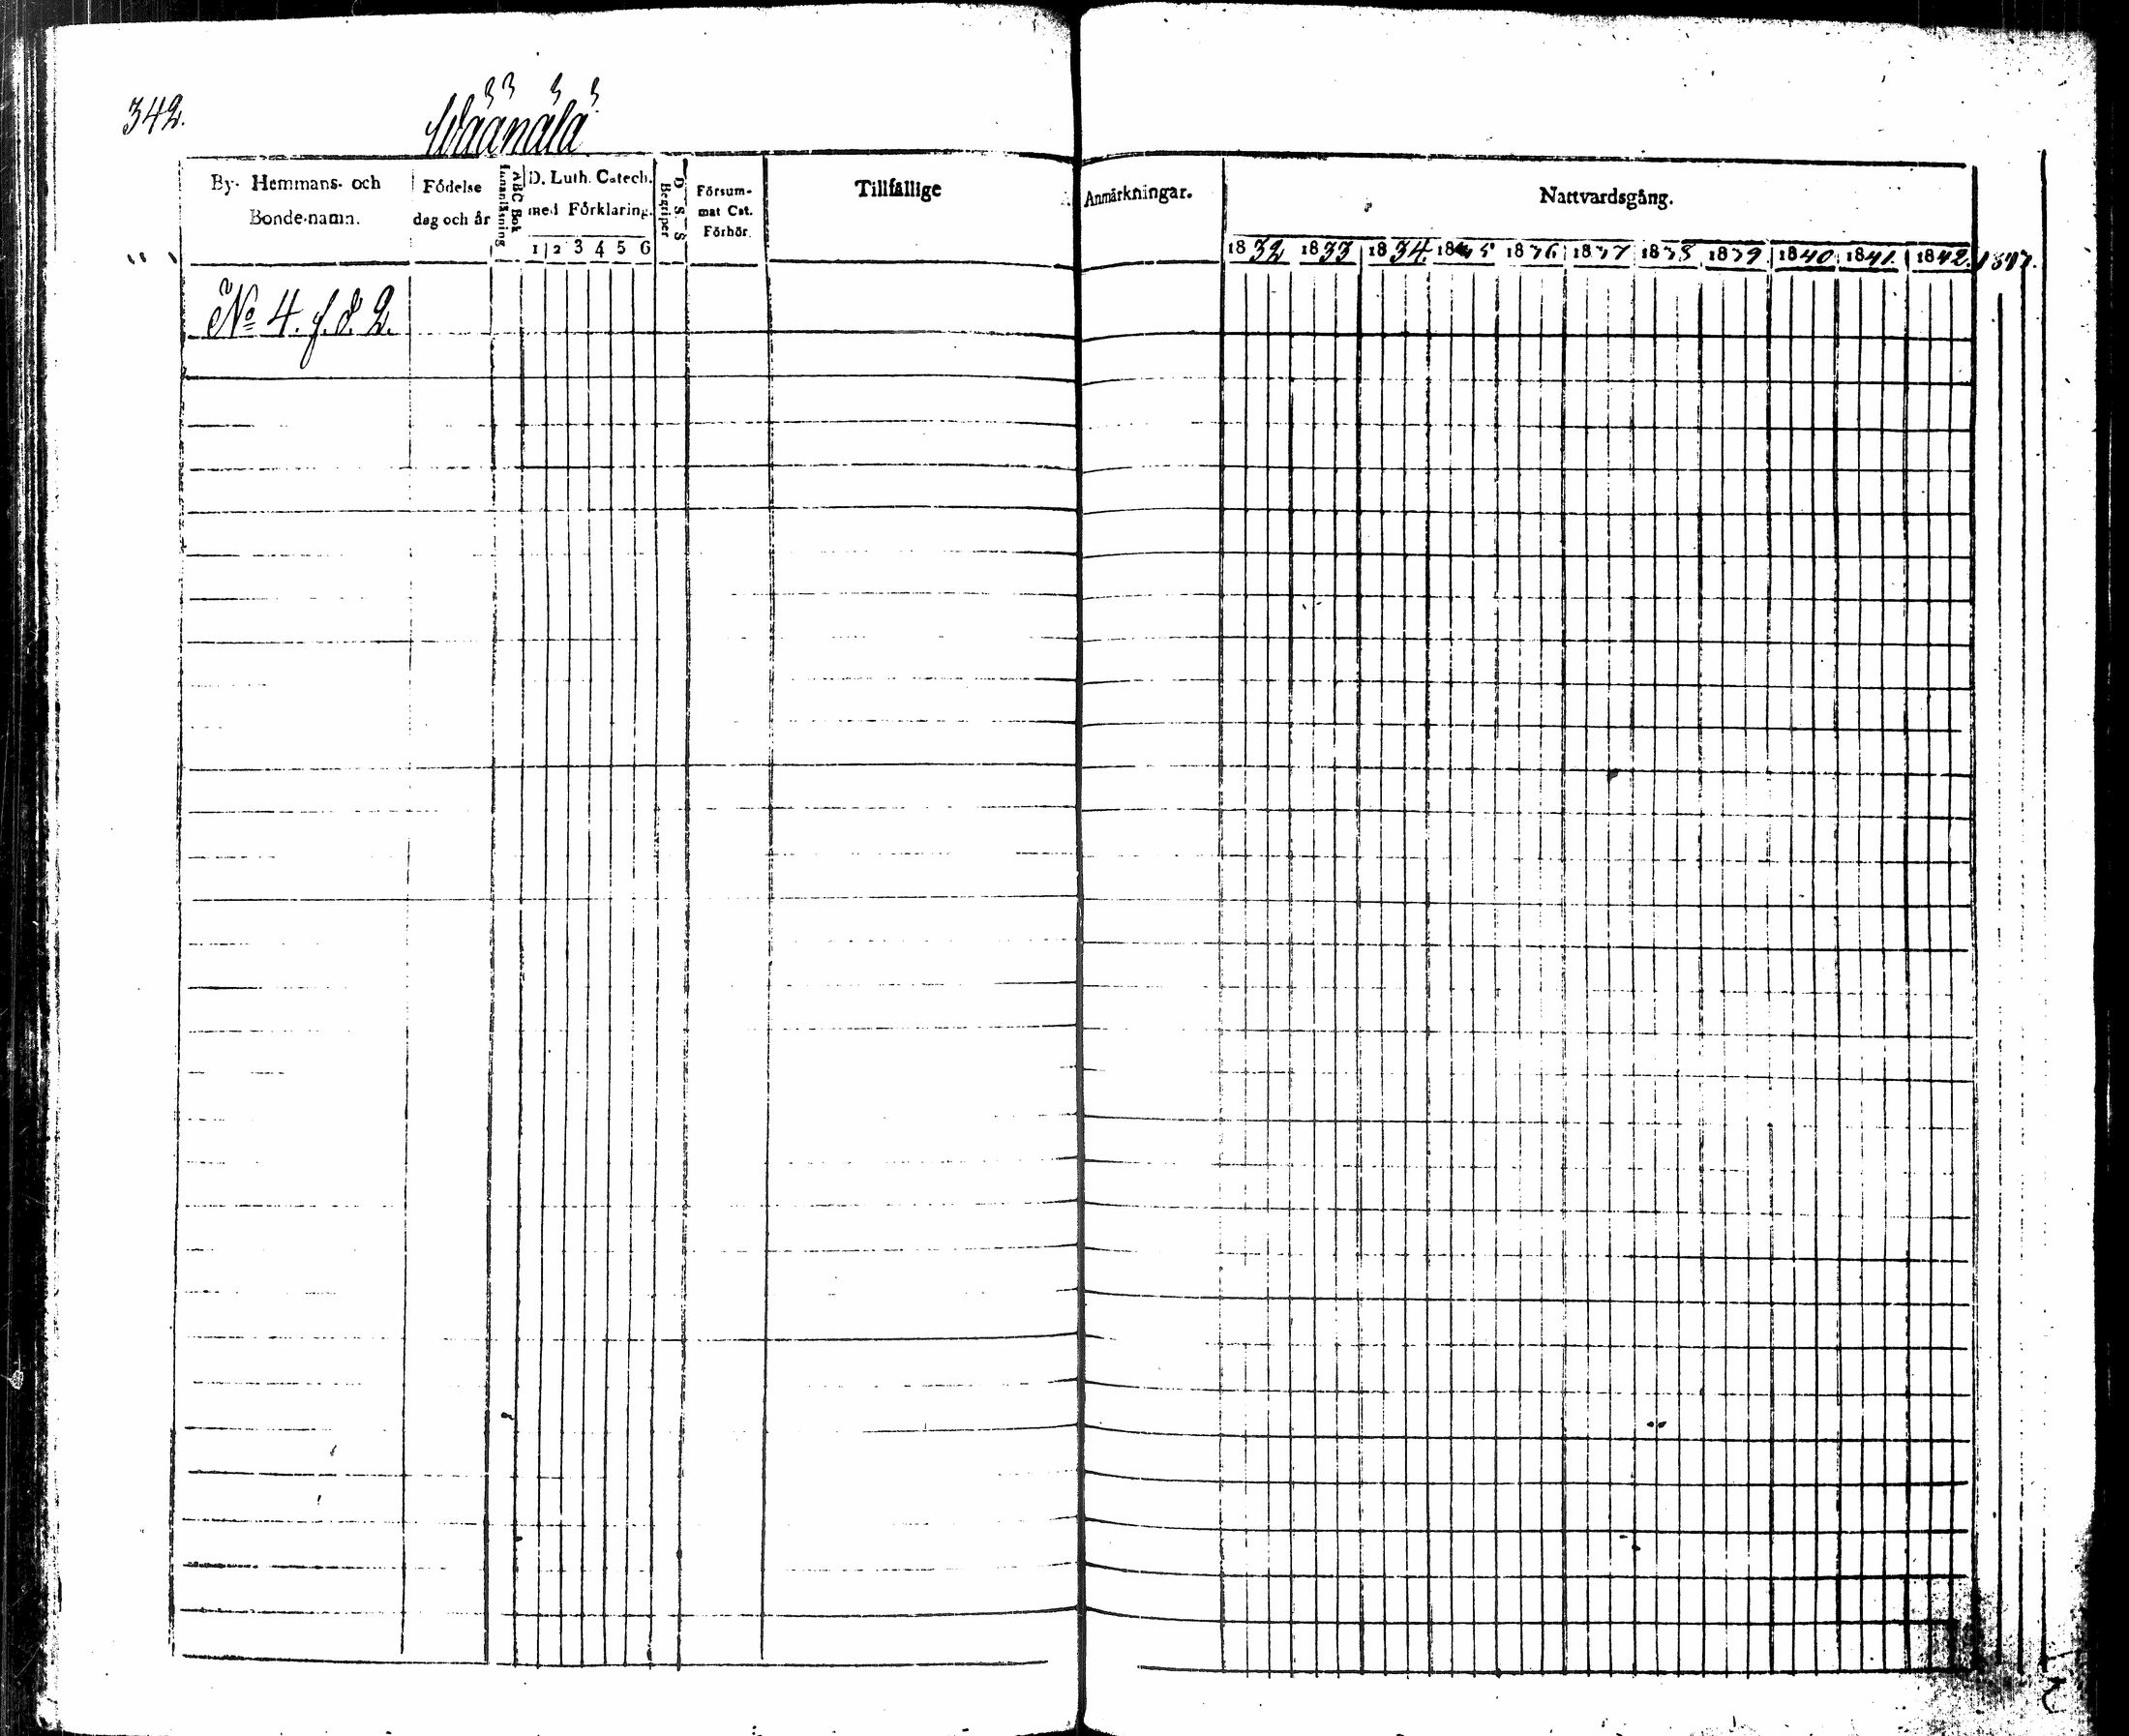 342.
Wäänälä
By- Hemmans- och
Bonde-namn.
Födelse
dag och år
ABC Bok
Innanläsning
D. Luth. Catech.
med Förklaring.
1 2 3 4 5 6
D. S. S
Begriper
Försum-
mat Cat.
Förhör.
Tillfällige
Anmärkningar.
Nattvardsgång.
1832 1833 1834. 1835 1836 1837 1838 1839 1840. 1841. 1842.
No 4. f. d. 2.